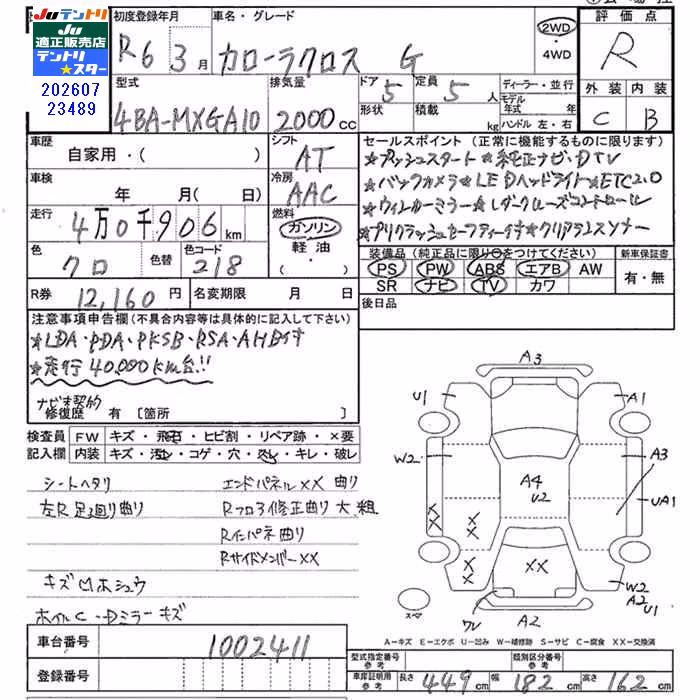 JUテントリ
JU
適正販売店
テントリ
★スター
202607
23489
初度登録年月
R6 3月
車名・グレード
カローラクロス G
2WD
・
4WD
評価点
R
外装 内装
C B
型式
4BA-MXGA10
排気量
2000cc
ドア 5
定員 5人
形状
積載 kg
ディーラー・並行
モデル年式 年
ハンドル 左・右
車歴
自家用・( )
シフト
AT
車検
年 月( 日)
冷房
AAC
走行
4万0千906km
燃料
ガソリン
軽油
・( )
色
クロ
色替
色コード
218
R券 12,160円
名変期限 月 日
セールスポイント(正常に機能するものに限ります)
★プッシュスタート★純正ナビ・DTV
★バックカメラ★LEDヘッドライト★ETC2.0
★ウィンカーミラー★レダクルーズコントロール
★プリクラッシュセーフティー付★クリアランスソナー
装備品(純正品に限り○をつけてください)
PS PW ABS エアB AW
SR ナビ TV カワ
新車保証書
有・無
後日品
注意事項申告欄(不具合内容等は具体的に記入して下さい)
★LDA・PDA・PKSB・RSA・AHB付
★走行40,000km台!!
ナビ未契約
修復歴 有 [箇所 ]
検査員 FW キズ・飛石・ヒビ割・リペア跡・×要
記入欄 内装 キズ・汚レ・コゲ・穴・炎レ・キレ・破レ
シートヘタリ
左R足廻り曲り
エンドパネルXX 曲り
Rフロア修正曲り大 組
Rインパネ曲り
RサイドメンバーXX
キズMホシュウ
ホイルC・Dミラーキズ
A3
U1
A1
W2
A3
A4
U2
UA1
X
X
X
X
X
X
XX
W2
A2
U1
スペア
A2
A−キズ E−エクボ U−凹み W−補修跡 S−サビ C−腐食 XX−交換済
車台番号 1002411
登録番号
型式指定番号
参考
類別区分番号
参考
車庫証明用
参考
長さ 449cm
幅 182cm
高さ 162cm